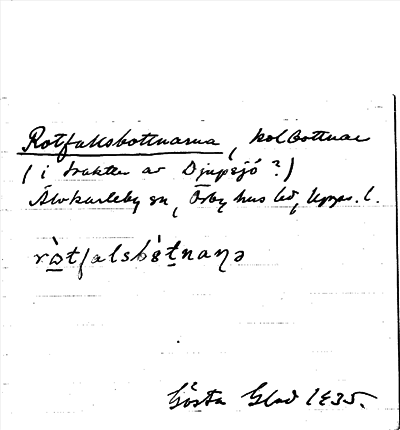 Rotfallsbottnarna, kolbottnar
(i trakten av Djupsjö?)
Älvkarleby sn, Örbyhus hd, Upps. l.
ròtfalsbòtnaṇə
Gösta Glad 1935.